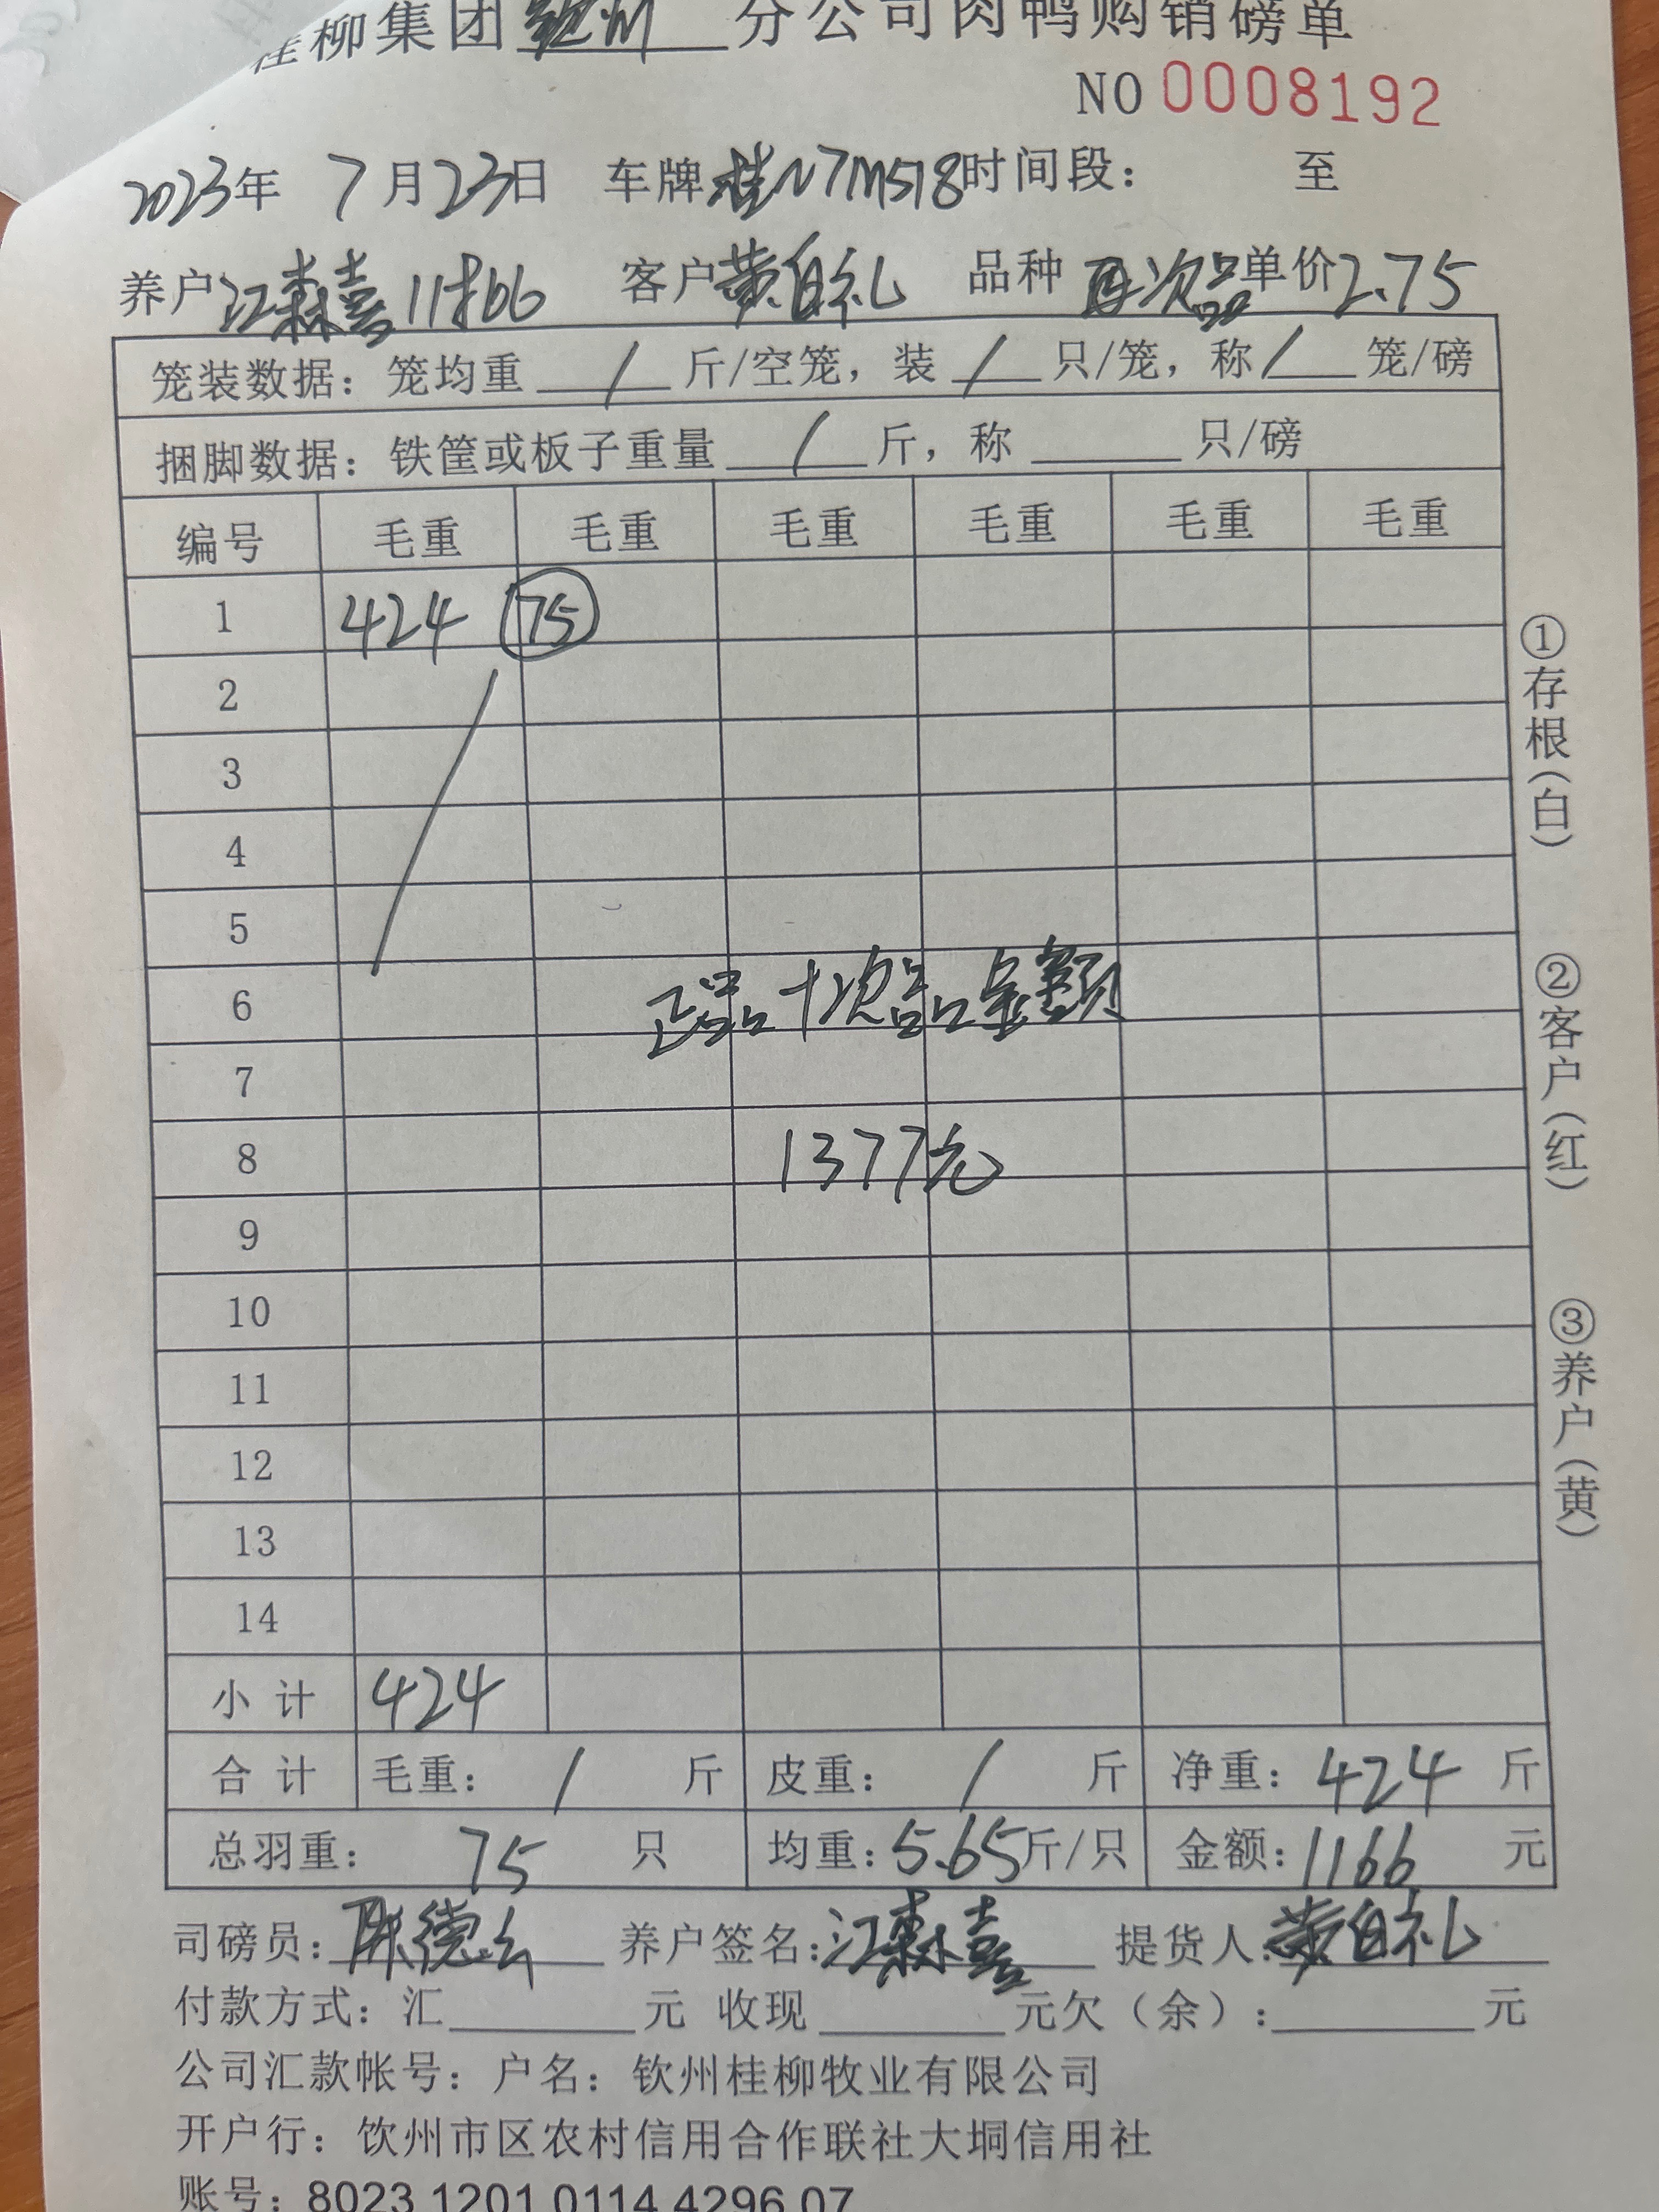 桂柳集团钦州分公司肉鸭购销磅单
NO 0008192
2023年 7月23日 车牌桂N7M518时间段: 至
养户江森喜11批66 客户黄自礼 品种 次品单价2.75
笼装数据: 笼均重 / 斤/空笼, 装 / 只/笼, 称 / 笼/磅
捆脚数据: 铁筐或板子重量 / 斤, 称 只/磅
编号 毛重 毛重 毛重 毛重 毛重 毛重
1 424 75
2
3
4
5
6 正品+次品金额
7
8 1377元
9
10
11
12
13
14
小计 424
合计 毛重: / 斤 皮重: / 斤 净重: 424 斤
总羽重: 75 只 均重: 5.65斤/只 金额: 1166 元
司磅员: 陈德 养户签名: 江森喜 提货人: 黄自礼
付款方式: 汇 元 收现 元欠(余): 元
公司汇款帐号: 户名: 钦州桂柳牧业有限公司
开户行: 钦州市区农村信用合作联社大垌信用社
账号: 8023 1201 0114 4296 07
①存根(白)
②客户(红)
③养户(黄)